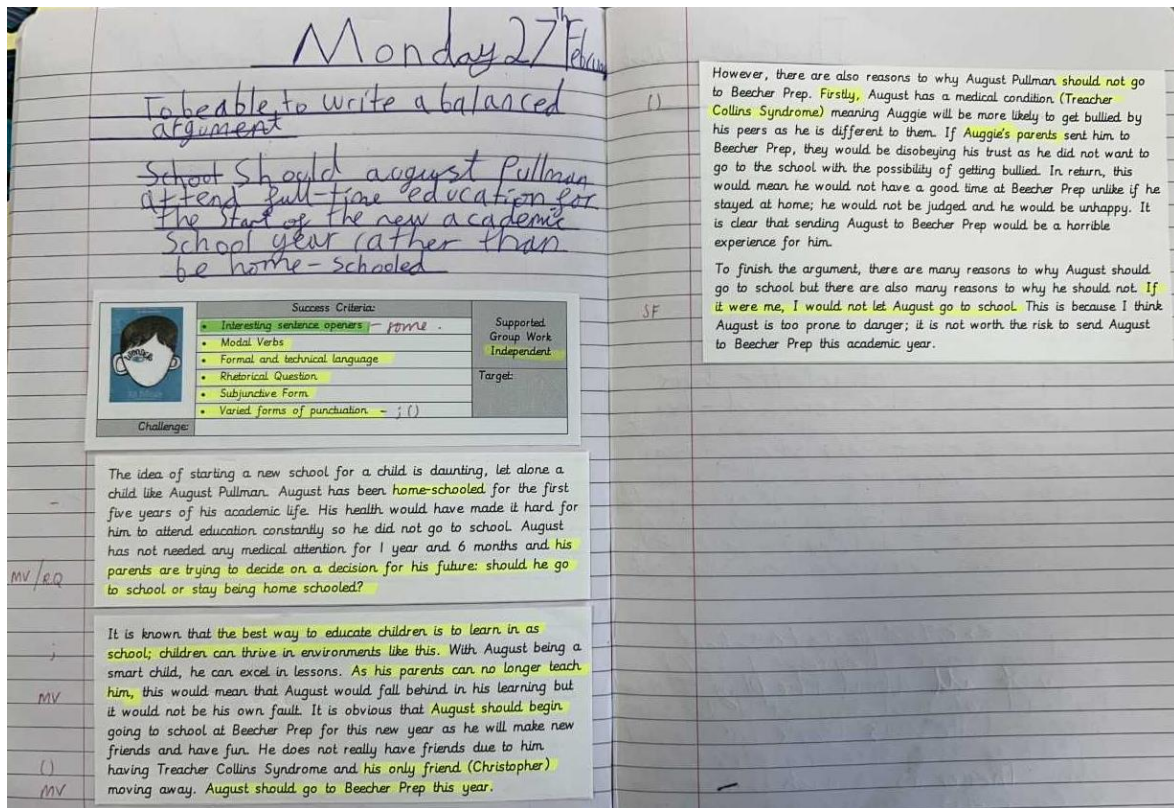 Monday 27th
To be able to write a balanced
argument
School Should august Pullman
attend full-time education for
the start of the new academic
school year rather than
be home-schooled
Success Criteria:
• Interesting sentence openers - some.
• Modal Verbs
• Formal and technical language
• Rhetorical Question
• Subjunctive Form
• Varied forms of punctuation - ; ()
Supported
Group Work
Independent
Target:
Challenge:
The idea of starting a new school for a child is daunting, let alone a
child like August Pullman. August has been home-schooled for the first
five years of his academic life. His health would have made it hard for
him to attend education constantly so he did not go to school. August
has not needed any medical attention for 1 year and 6 months and his
parents are trying to decide on a decision for his future: should he go
to school or stay being home schooled?
-
MV/RQ
It is known that the best way to educate children is to learn in as
school; children can thrive in environments like this. With August being a
smart child, he can excel in lessons. As his parents can no longer teach
him, this would mean that August would fall behind in his learning but
it would not be his own fault. It is obvious that August should begin
going to school at Beecher Prep for this new year as he will make new
friends and have fun. He does not really have friends due to him
having Treacher Collins Syndrome and his only friend (Christopher)
moving away. August should go to Beecher Prep this year.
;
MV
()
MV
However, there are also reasons to why August Pullman should not go
to Beecher Prep. Firstly, August has a medical condition (Treacher
Collins Syndrome) meaning Auggie will be more likely to get bullied by
his peers as he is different to them. If Auggie's parents sent him to
Beecher Prep, they would be disobeying his trust as he did not want to
go to the school with the possibility of getting bullied. In return, this
would mean he would not have a good time at Beecher Prep unlike if he
stayed at home; he would not be judged and he would be unhappy. It
is clear that sending August to Beecher Prep would be a horrible
experience for him.
()
To finish the argument, there are many reasons to why August should
go to school but there are also many reasons to why he should not. If
it were me, I would not let August go to school. This is because I think
August is too prone to danger; it is not worth the risk to send August
to Beecher Prep this academic year.
SF